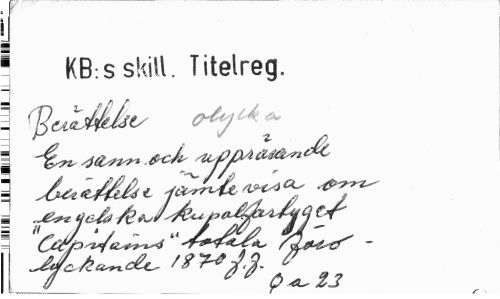 KB:s skill. Titelreg.
Berättelse olycka
En sann och upprörande
berättelse jämte visa om
engelska kupolfartyget
"Captains" totala föro-
lyckande 1870 f.f.
Q a 23